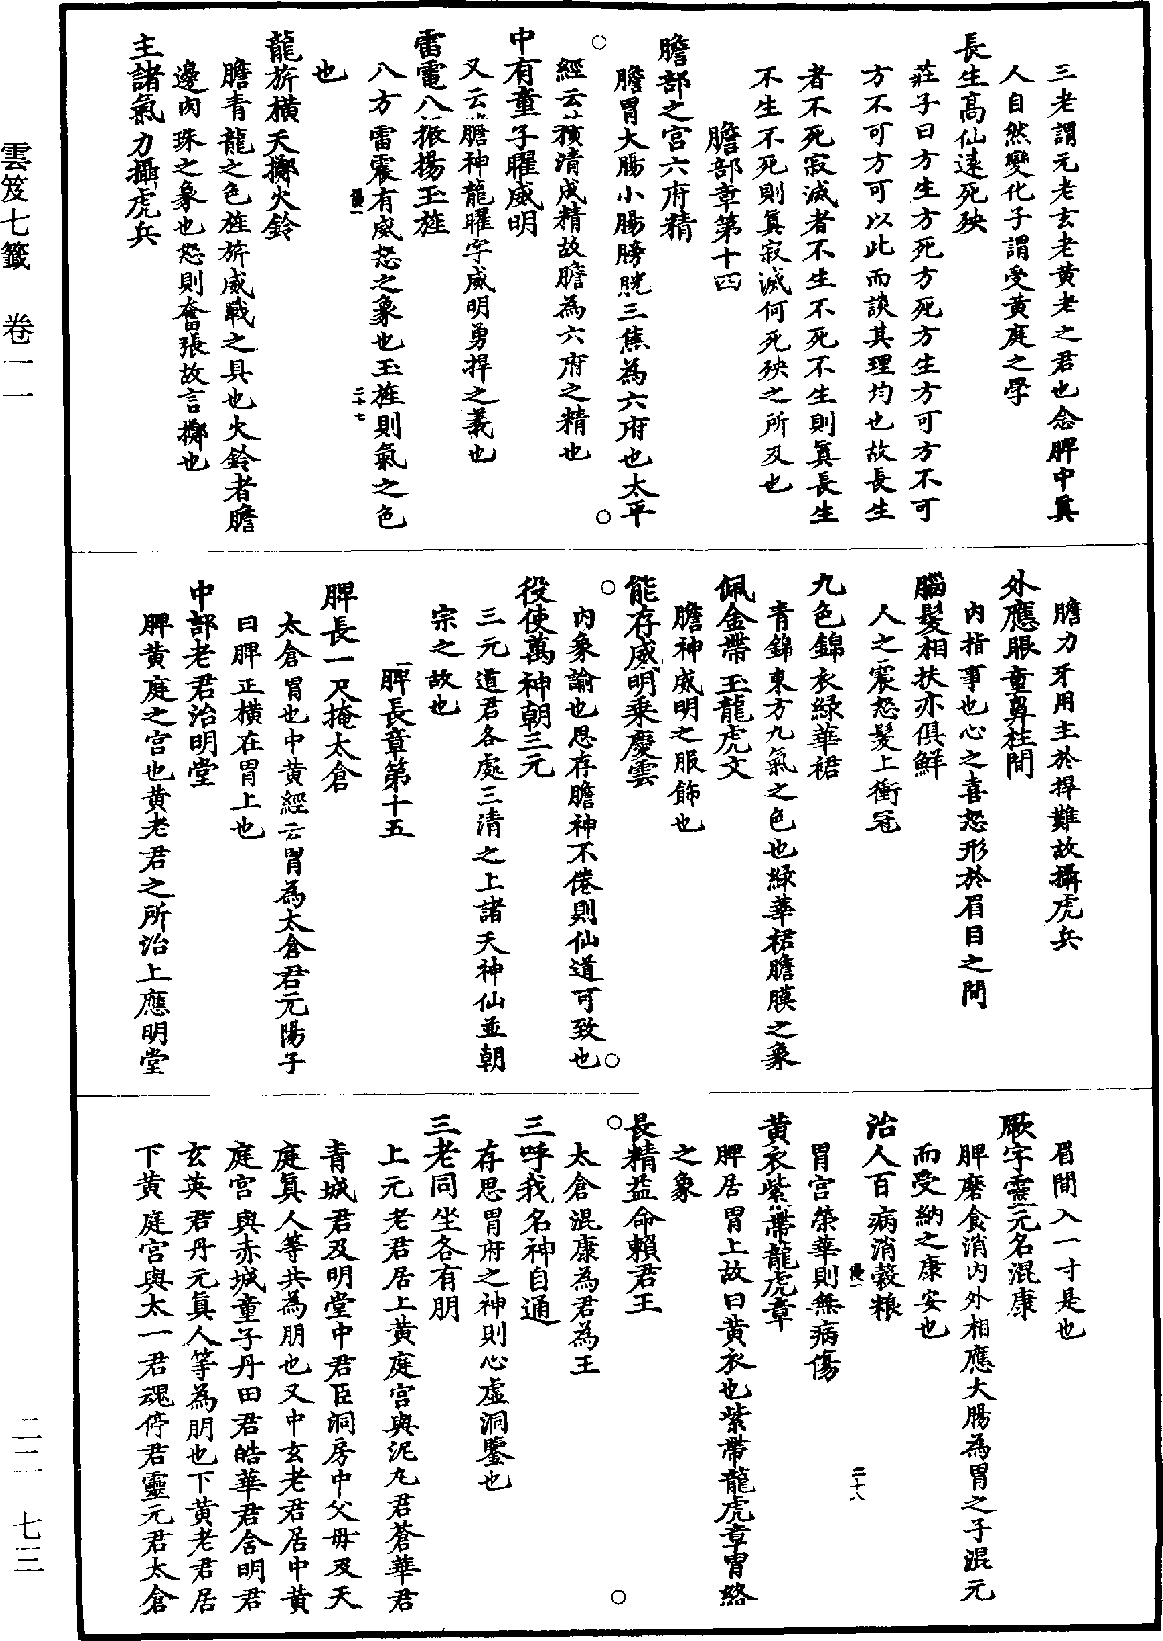 雲笈七籤 卷一一
二二 七三
三老謂元老玄老黃老之君也念脾中真
人自然變化子謂受黃庭之學
長生高仙遠死殃
莊子曰方生方死方死方生方可方不可
方不可方可以此而談其理均也故長生
者不死寂滅者不生不死不生則真長生
不生不死則真寂滅何死殃之所及也
膽部章第十四
膽部之宮六府精
膽胃大腸小腸膀胱三焦為六府也太平
經云積清成精故膽為六府之精也
中有童子曜威明
又云膽神龍曜字威明勇捍之義也
雷電八振揚玉旌
八方雷震有威怒之象也玉旌則氣之色
二十七
也
龍旂橫天擲火鈴
膽青龍之色旌旂威戰之具也火鈴者膽
邊肉珠之象也怒則奮張故言擲也
主諸氣力攝虎兵
膽力牙用主於捍難故攝虎兵
外應眼童鼻柱間
內指事也心之喜怒形於眉目之間
腦髮相扶亦俱鮮
人之震怒髮上衝冠
九色錦衣綠華裙
青錦東方九氣之色也綠華裙膽膜之象
佩金帶玉龍虎文
膽神威明之服飾也
能存威明乘慶雲
內象諭也思存膽神不倦則仙道可致也
役使萬神朝三元
三元道君各處三清之上諸天神仙並朝
宗之故也
脾長章第十五
脾長一尺掩太倉
太倉胃也中黃經云胃為太倉君元陽子
曰脾正橫在胃上也
中部老君治明堂
脾黃庭之宮也黃老君之所治上應明堂
眉間入一寸是也
厥字靈元名混康
脾磨食消內外相應大腸為胃之子混元
而受納之康安也
治人百病消穀粮
胃宮榮華則無病傷
二十八
黃衣紫帶龍虎章
脾居胃上故曰黃衣也紫帶龍虎章胃絡
之象
長精益命賴君王
太倉混康為君為王
三呼我名神自通
存思胃府之神則心虛洞鑒也
三老同坐各有朋
上元老君居上黃庭宮與泥丸君蒼華君
青城君及明堂中君臣洞房中父母及天
庭真人等共為朋也又中玄老君居中黃
庭宮與赤城童子丹田君皓華君含明君
玄英君丹元真人等為朋也下黃老君居
下黃庭宮與太一君魂停君靈元君太倉